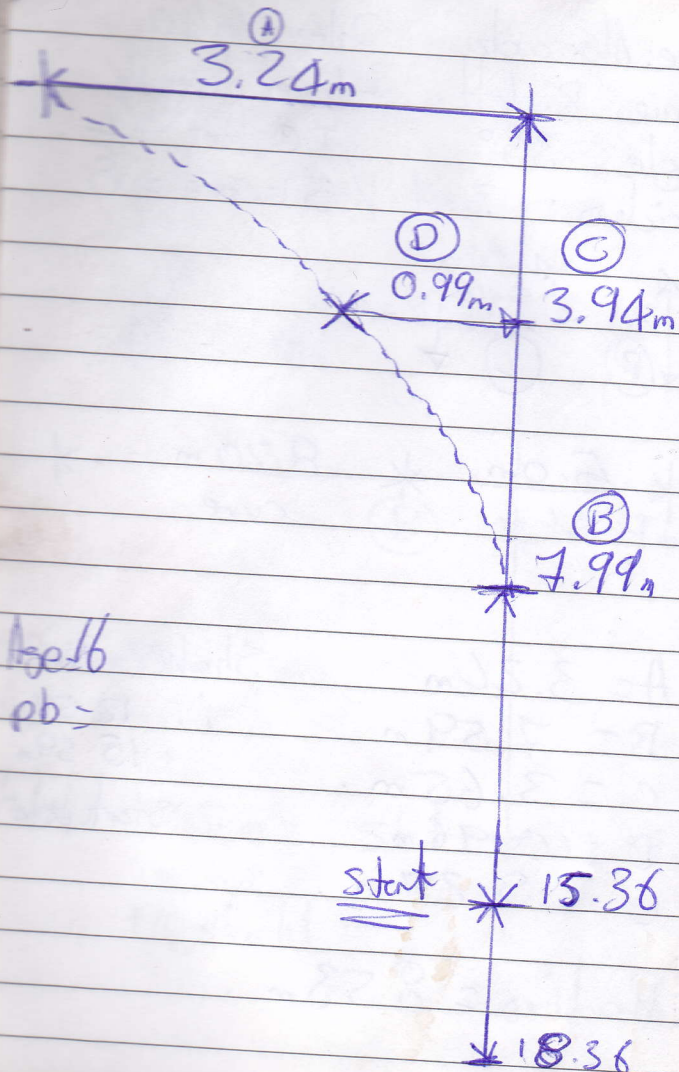 A
3.24m
D
C
0.99m
3.94m
B
7.99m
Age 16
pb =
start
15.36
18.36